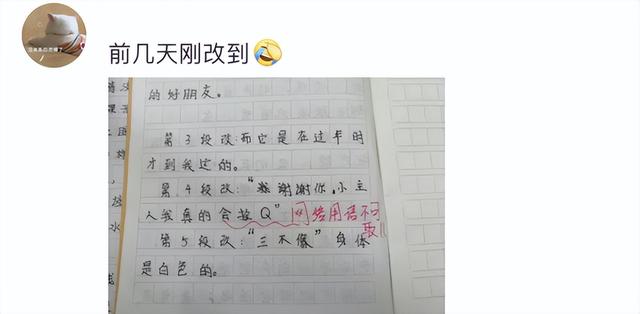 前几天刚改到
的好朋友。
第3段改:而它是在过年时
才到我这的。
第4段改:“谢谢你,小主
人我真的会拴Q” 网络用语不可取!!
第5段改:“三不像”身体
是白色的。